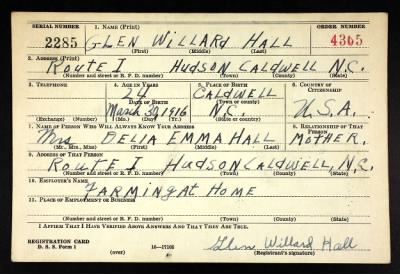 SERIAL NUMBER 1. NAME (Print) ORDER NUMBER
2285 GLEN WILLARD HALL 4305
(First) (Middle) (Last)
2. ADDRESS (Print)
ROUTE I HUDSON CALDWELL N.C.
(Number and street or R. F. D. number) (Town) (County) (State)
3. TELEPHONE 4. AGE IN YEARS 5. PLACE OF BIRTH 6. COUNTRY OF CITIZENSHIP
24 CALDWELL
DATE OF BIRTH (Town or county)
March 30, 1916 N.C. U.S.A.
(Exchange) (Number) (Mo.) (Day) (Yr.) (State or country)
7. NAME OF PERSON WHO WILL ALWAYS KNOW YOUR ADDRESS 8. RELATIONSHIP OF THAT PERSON
Mrs DELIA EMMA HALL MOTHER.
(Mr., Mrs., Miss) (First) (Middle) (Last)
9. ADDRESS OF THAT PERSON
ROUTE I HUDSON CALDWELL, N.C.
(Number and street or R. F. D. number) (Town) (County) (State)
10. EMPLOYER'S NAME
FARMING AT HOME
11. PLACE OF EMPLOYMENT OR BUSINESS
(Number and street or R. F. D. number) (Town) (County) (State)
I AFFIRM THAT I HAVE VERIFIED ABOVE ANSWERS AND THAT THEY ARE TRUE.
REGISTRATION CARD
D. S. S. Form 1 (over) 16—17105 Glen Willard Hall
(Registrant's signature)